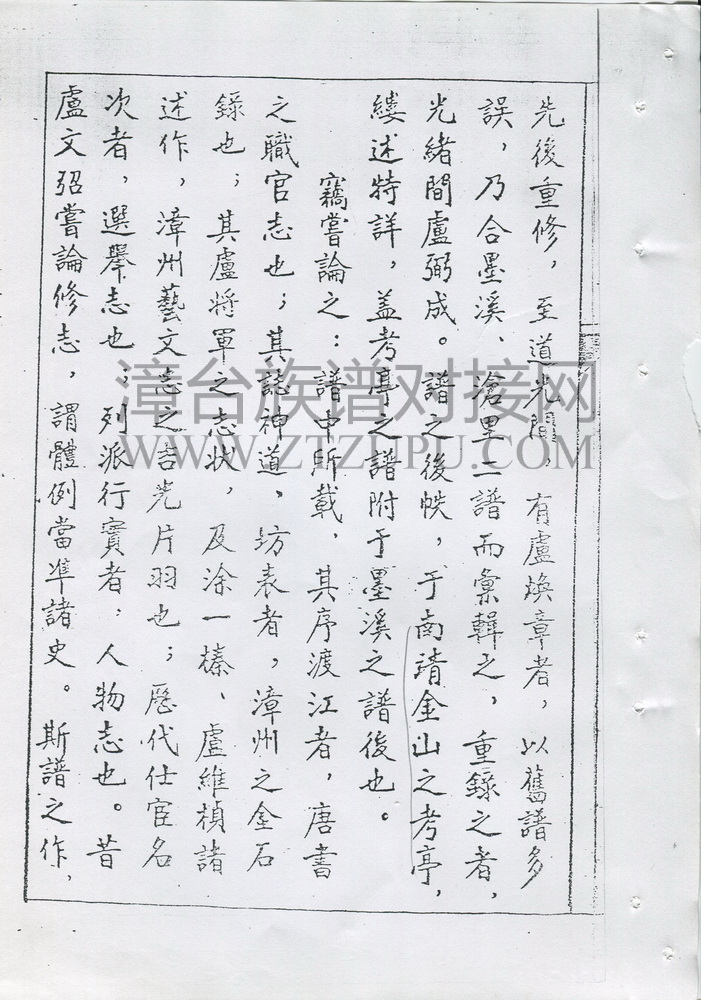 先後重修，至道光間，有盧煥章者，以舊譜多
誤，乃合墨溪、滄里二譜而彙輯之，重錄之者，
光緒間盧弼成。譜之後帙，于南靖金山之考亭，
縷述特詳，盖考亭之譜附于墨溪之譜後也。
竊嘗論之：譜中所載，其序渡江者，唐書
之職官志也；其誌神道、坊表者，漳州之金石
錄也；其盧將軍之志狀，及涂一榛、盧維楨諸
述作，漳州藝文志之吉光片羽也；歷代仕宦名
次者，選舉志也；列派行實者，人物志也。昔
盧文弨嘗論修志，謂體例當準諸史。斯譜之作，
漳台族谱对接网
WWW.ZTZUPU.COM